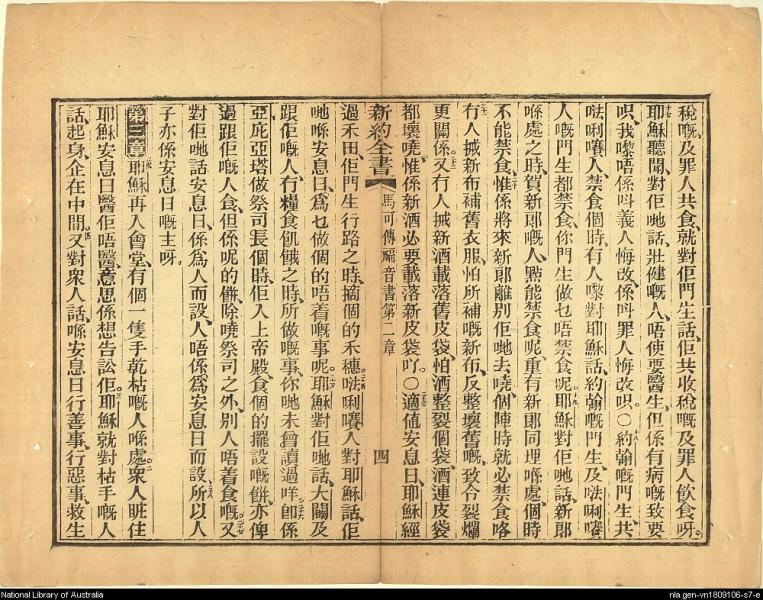 稅嘅及罪人共食、就對佢門生話、佢共收稅嘅及罪人飲食呀。
耶穌聽聞、對佢哋話、壯健嘅人、唔使要醫生、但係有病嘅致要
呮、我嚟唔係呌義人悔改、係呌罪人悔改呮。○約翰嘅門生、共
𠵽唎嚽人、禁食個時、有人嚟對耶穌話、約翰嘅門生、及𠵽唎嚽
人嘅門生都禁食、你門生做乜唔禁食呢。耶穌對佢哋話、新郞
喺處之時、賀新郞嘅人、點能禁食呢、重有新郞同埋喺處、個時
不能禁食、惟係將來新郞離別佢哋去嘵、個陣時就必禁食咯
有人搣新布補舊衣服、怕所補嘅新布、反整壞舊嘅、致令裂爛
更關係、又有人搣新酒載落舊皮袋、怕酒整裂個袋、酒連皮袋
都壞嘵、惟係新酒必要載落新皮袋吖。○適值安息日、耶穌經
新約全書 馬可傳福音書第二章 四
過禾田、佢門生行路之時、摘個的禾穗、𠵽唎嚽人對耶穌話、佢
哋喺安息日、爲乜做個的唔着嘅事呢。耶穌對佢哋話、大闢及
跟佢嘅人、冇糧食飢餓之時、所做嘅事、你哋未曾讀過咩、卽係
亞庇亞塔做祭司長個時、佢入上帝殿、食個的擺設嘅餅、亦俾
過跟佢嘅人食、但係呢的餅、除嘵祭司之外、別人唔着食嘅。又
對佢哋話、安息日、係爲人而設、人唔係爲安息日而設、所以人
子亦係安息日嘅主呀。
第三章 耶穌再入會堂、有個一隻手乾枯嘅人喺處。衆人眐住
耶穌安息日醫佢唔醫、意思係想告訟佢、耶穌就對枯手嘅人
話、起身、企在中間。又對衆人話、喺安息日行善事、行惡事、救生
National Library of Australia
nla.gen-vn1809106-s7-e